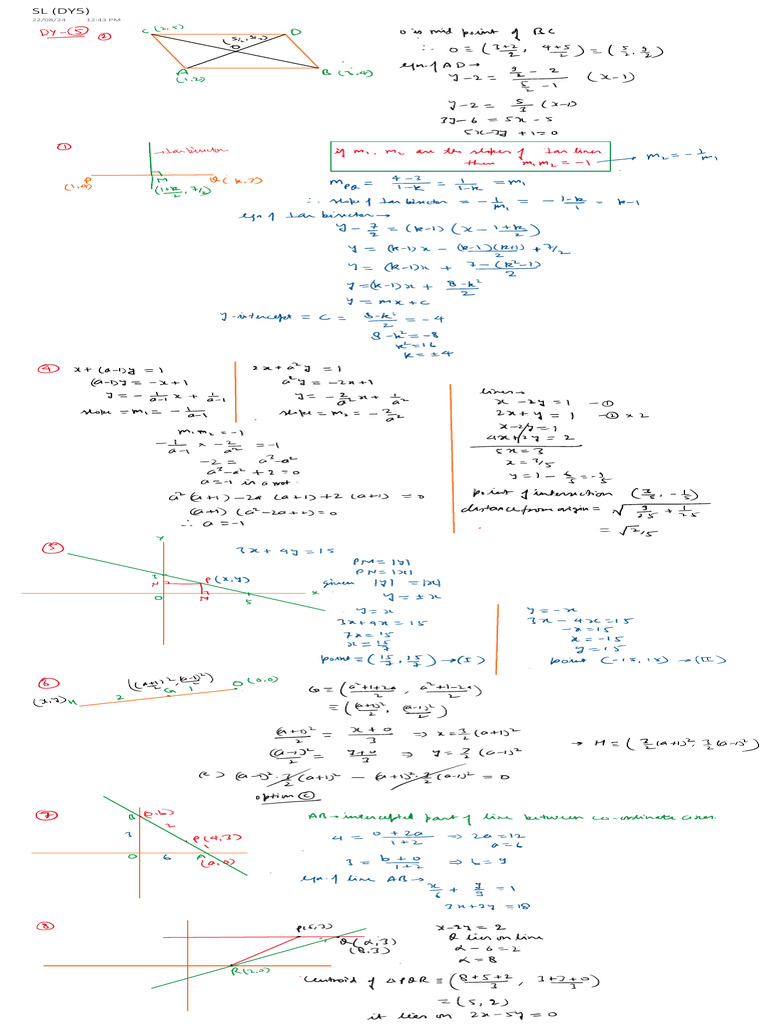 SL (DY5)
22/08/24 12:43 PM
DY-(5)
②
C (2,5)
D
(5/2, 9/2)
O
A
(1,2)
B (3,4)
O is mid point of BC
∴ O = (3+2/2, 4+5/2) = (5/2, 9/2)
eqn. of AD →
y-2 = (9/2 - 2)/(5/2 - 1) (x-1)
y-2 = 5/3 (x-1)
3y-6 = 5x-5
5x-3y+1=0
①
⊥ar bisector
P
(1,4)
M
(1+k/2, 7/2)
Q (k,3)
if m₁, m₂ are the slopes of ⊥ar lines
then m₁m₂ = -1
→ m₂ = -1/m₁
m_PQ = (4-3)/(1-k) = 1/(1-k) = m₁
∴ slope of ⊥ar bisector = -1/m₁ = -(1-k)/1 = k-1
eqn of ⊥ar bisector →
y - 7/2 = (k-1)(x - (1+k)/2)
y = (k-1)x - (k-1)(k+1)/2 + 7/2
y = (k-1)x + (7-(k²-1))/2
y = (k-1)x + (8-k²)/2
y = mx+c
y-intercept = c = (8-k²)/2 = -4
8-k² = -8
k² = 16
k = ±4
④
x+(a-1)y = 1
(a-1)y = -x+1
y = -1/(a-1) x + 1/(a-1)
slope = m₁ = -1/(a-1)
2x+a²y = 1
a²y = -2x+1
y = -2/a² x + 1/a²
slope = m₂ = -2/a²
m₁m₂ = -1
-1/(a-1) × -2/a² = -1
-2 = a³-a²
a³-a²+2=0
a=-1 is a root
a²(a+1) -2a(a+1)+2(a+1) = 0
(a+1)(a²-2a+2)=0
∴ a=-1
lines →
x-2y=1 -①
2x+y=1 -② × 2
x-2y=1
4x+2y=2
5x=3
x=3/5
y=1-6/5=-1/5
point of intersection (3/5, -1/5)
distance from origin = √(9/25 + 1/25)
= √2/5
⑤
Y
3
N
P(x,y)
O
M
5
X
3x+4y=15
PM=|y|
PN=|x|
given |y|=|x|
y=±x
y=x
3x+4x=15
7x=15
x=15/7
point=(15/7, 15/7) →(I)
y=-x
3x-4x=15
-x=15
x=-15
y=15
point (-15,15) →(II)
⑥
(x,y) H
2
((a+1)²/2, (a-1)²/2)
G
1
O (0,0)
G = (a²+1+2a/2, a²+1-2a/2)
= ((a+1)²/2, (a-1)²/2)
(a+1)²/2 = (x+0)/3 ⇒ x=3/2(a+1)²
(a-1)²/2 = (y+0)/3 ⇒ y=3/2(a-1)²
→ H=(3/2(a+1)², 3/2(a-1)²)
(c) (a-1)²·3/2(a+1)² - (a+1)²·3/2(a-1)² = 0
option ⓒ
⑦
B (0,b)
2
3
P(4,3)
1
O
6
A
(a,0)
AB → intercepted part of line between co-ordinate axes.
4 = (0+2a)/(1+2) ⇒ 2a=12
a=6
3 = (b+0)/(1+2) ⇒ b=9
eqn. of line AB →
x/6 + y/9 = 1
3x+2y=18
⑧
P(5,3)
Q(α,3)
(8,3)
R(2,0)
x-2y=2
Q lies on line
α-6=2
α=8
centroid of △PQR = (8+5+2/3, 3+3+0/3)
= (5,2)
it lies on 2x-5y=0